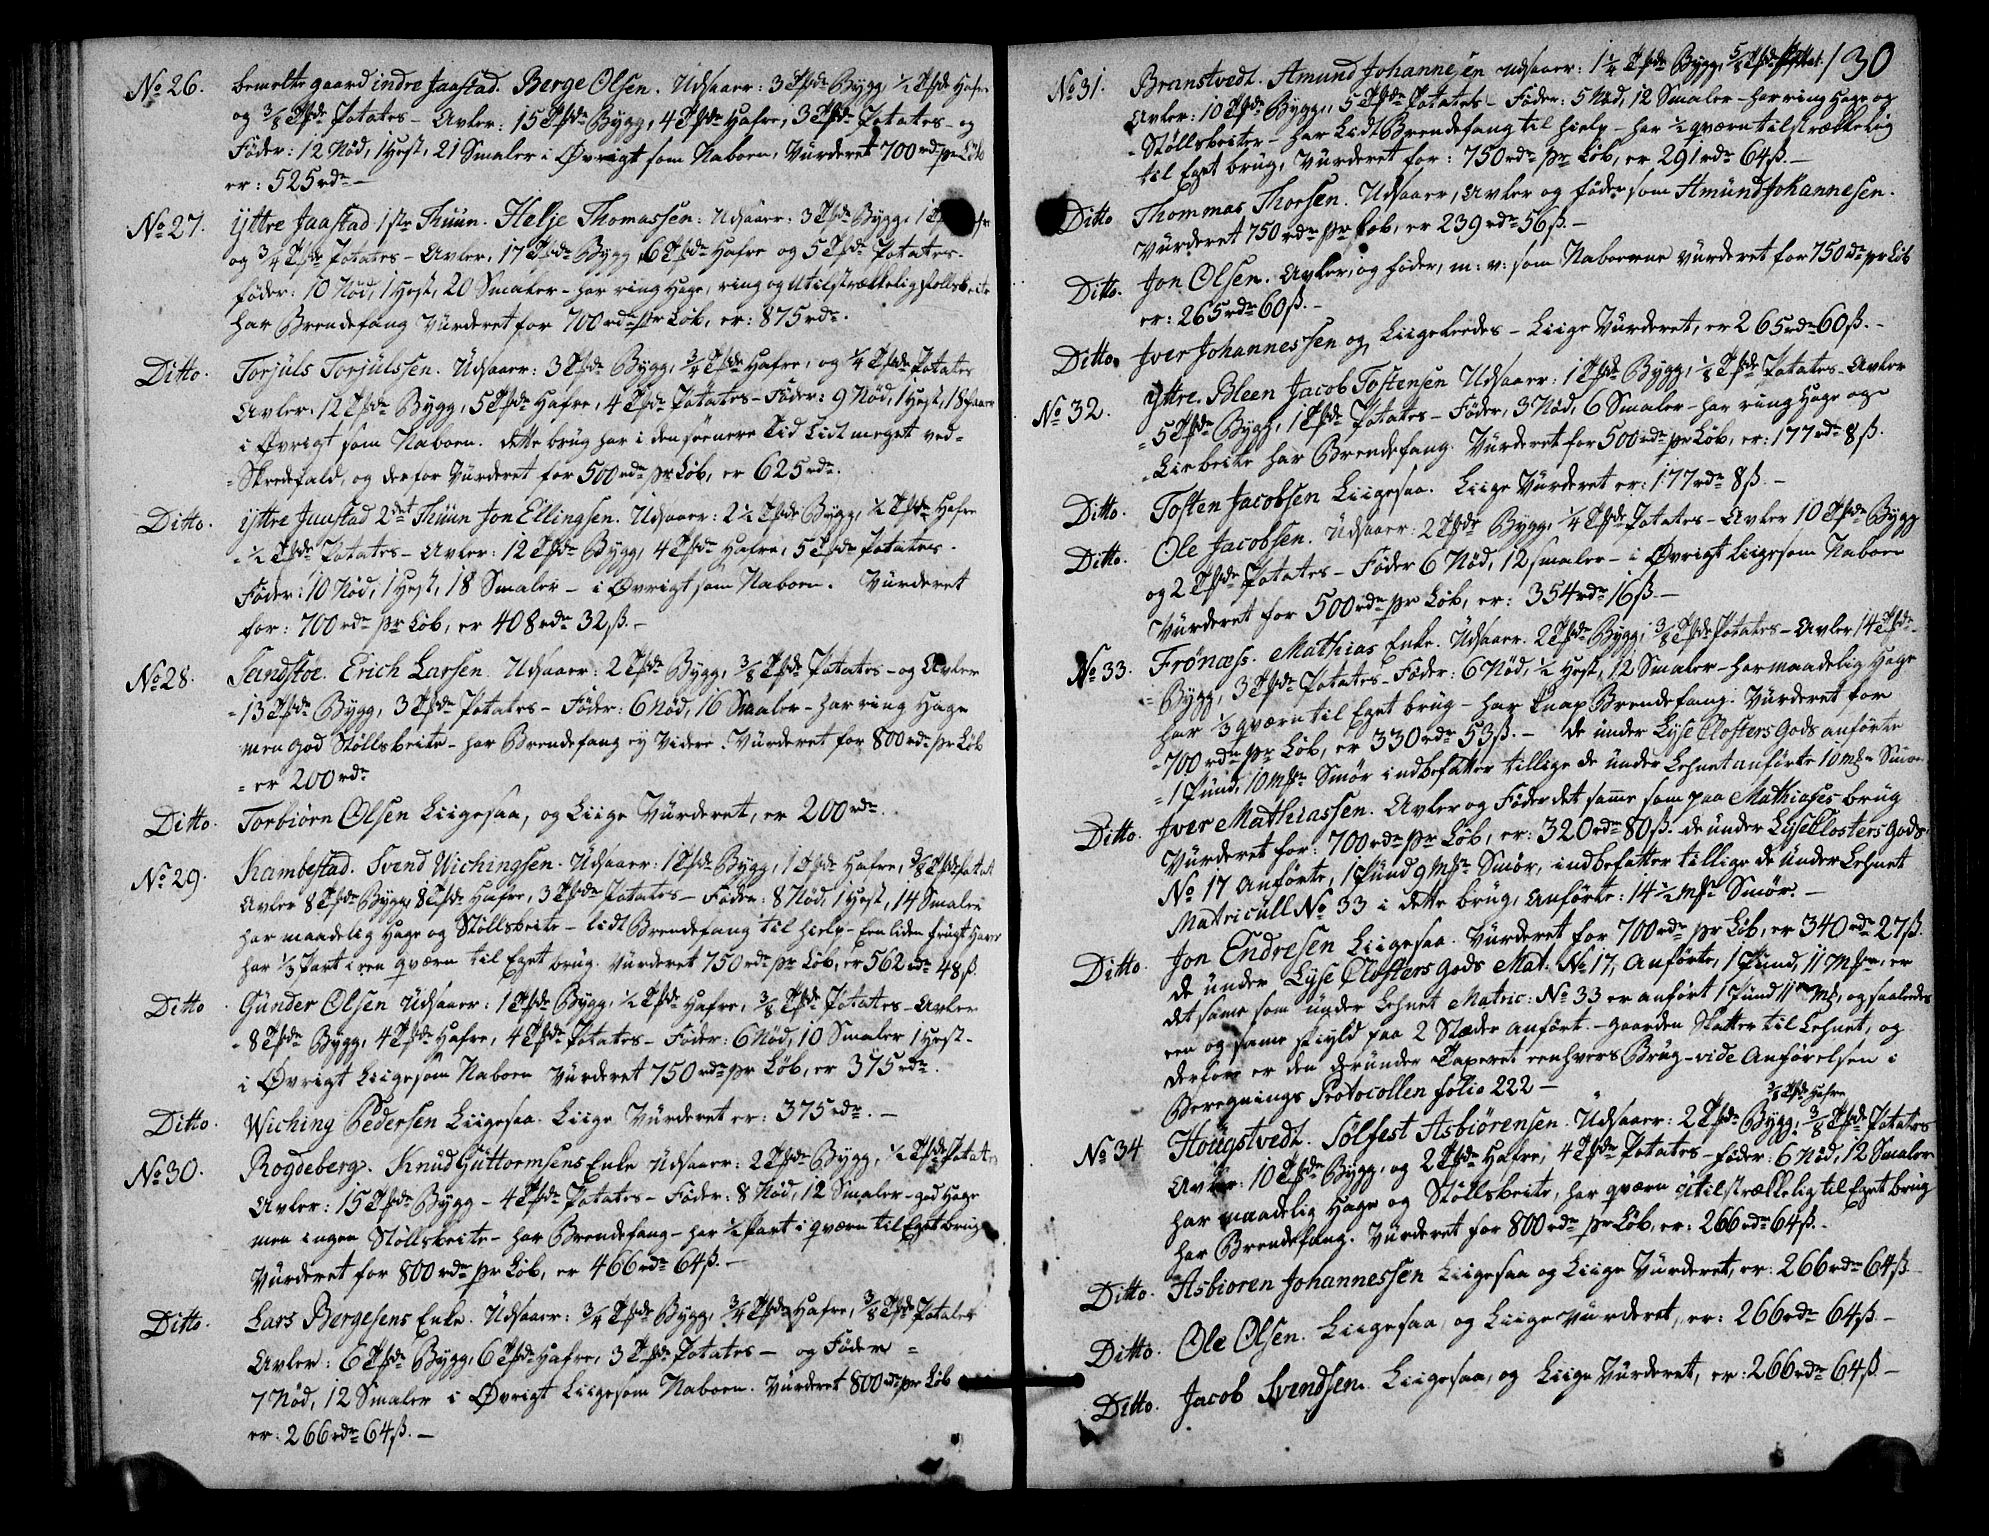 No 26. bemelte gaard indre Jaastad. Berge Olsen. Udsaaer: 3 Tønder Bygg, ½ Tønde Hafre
og 3/8 Tønde Potates – Avler: 15 Tønder Bygg, 4 Tønder Hafre, 3 Tønder Potates – og
Føder: 12 Nød, 1 Hest, 21 Smaler i Øvrigt som Naboen, Vürderet 700 rdr pr Løb
er: 525 rdr –
No 27. Yttre Jaastad 1ste Thüün. Helje Thomassen: Udsaaer: 3 Tønder Bygg, 1 Hafre
og ¾ Tønde Potates – Avler, 17 Tønder Bygg 6 Tønder Hafre og 5 Tønder Potates –
føder: 10 Nød, 1 Hest, 20 Smaler – har ring Hage, ring og utilstrækkelig støllsbeite
har Brendefang Vürderet for 700 rdr pr Løb, er: 875 rdr.
Ditto. Torjüls Torjülssen. Udsaaer: 3 Tønder Bygg, ¾ Tønde Hafre, og ¼ Tønde Potates
Avler: 12 Tønder Bygg, 5 Tønder Hafre, 4 Tønder Potates – Føder: 9 Nød, 1 Hest, 18
i Øvrigt som Naboen. dette brug har i den seenere Tid Lidt meget ved
Skredefald, og derfor Vürderet for 500 rdr pr Løb, er 625 rdr.
Ditto. Yttre Jaastad 2det Thüün Jon Ellingsen. Udsaaer: 2½ Tønder Bygg, ½ Tønde Hafre
½ Tønde Potates – Avler: 12 Tønder Bygg, 4 Tønder Hafre, 5 Tønder Potates –
Føder: 10 Nød, 1 Hest, 18 Smaler – i Øvrigt som Naboen. Vürderet
for: 700 rdr pr Løb, er 408 rdr 32 ß. –
No 28. Sandstøe. Erich Larsen. Udsaaer: 2 Tønder Bygg, 3/8 Tønde Potates – og Avler
13 Tønder Bygg, 3 Tønder Potates – Føder: 6 Nød, 16 Smaler – har ring Hage
men god Støllsbeite – har Brendefang ey Videre. Vürderet for 800 rdr pr Løb
er 200 rdr
Ditto. Torbiørn Olsen Liigesaa, og Liige Vürderet, er 200 rdr.
No 29. Kambestad. Svend Wichingsen. Udsaaer: 1 Tønde Bygg, 1 Tønde Hafre, 3/8 Tønde Potat
Avler 8 Tønder Bygg, 8 Tønder Hafre, 3 Tønder Potates – Føder: 8 Nød, 1 Hest, 14 Smaler
har maadelig Hage og Støllsbeite – lidt Brendefang til hielp – een liden frügt Have
har 1/3 Part i een qværn til Eget brüg. Vürderet 750 rdr pr Løb, er 562 rdr 48 ß.
Ditto Gunder Olsen Udsaaer: 1 Tønde Bygg, ½ Tønde Hafre, 3/8 Tønde Potates – Avler
8 Tønder Bygg, 4 Tønder Hafre, 4 Tønder Potates – Føder: 6 Nød, 10 Smaler 1 Hest –
i Øvrigt Liigesom Naboen Vürderet 750 rdr pr Løb, er 375 rdr.
Ditto. Wiching Pedersen Liigesaa. Liige Vürderet er: 375 rdr. –
No 30. Rogdeberg. Knüd Güttormsens Enke Udsaaer: 2 Tønder Bygg, ½ Tønde Potates
Avler: 15 Tønder Bygg – 4 Tønder Potates – Føder: 8 Nød, 12 Smaler – god Hage
men ingen Støllsbeite – har Brendefang – har ½ Part i qværn til Eget brüg
Vürderet for 800 rdr pr Løb, er 466 rdr 64 ß. –
Ditto. Lars Bergesens Enke. Udsaaer: ¾ Tønde Bygg, ¾ Tønde Hafre, 3/8 Tønde Potates
Avler: 6 Tønder Bygg, 6 Tønder Hafre, 3 Tønder Potates – og Føder
7 Nød, 12 Smaler i Øvrigt Liigesom Naboen. Vürderet 800 rdr pr Løb
er: 266 rdr 64 ß. –
130
No 31. Branstvedt. Amund Johannesen Udsaaer: 1¼ Tønde Bygg, 5/8 Tønde
Avler: 10 Tønder Bygg, 5 Tønder Potates – Føder: 5 Nød, 12 Smaler – har ring Hage og
Støllsbeiter – har Lidt Brendefang til hielp – har ½ qværn tilstrækkelig
til Eget brüg, Vürderet for: 750 rdr pr Løb, er 291 rdr 64 ß. –
Ditto Thommas Thorsen. Udsaaer, Avler og føder som Amünd Johannesen.
Vürderet 750 rdr pr Løb, er 239 rdr 56 ß. –
Ditto. Jon Olsen. Avler, og føder, m: v: som Naboerne Vürderet for 750 rdr pr Løb
er: 265 rdr 60 ß. –
Ditto Iver Johannessen og Liigeleedes – Liige Vürderet, er 265 rdr 60 ß. –
No 32. Yttre Bleen Jacob Tostensen Udsaaer: 1 Tønde Bygg, 1/8 Tønde Potates – Avler
5 Tønder Bygg, 1 Tønde Potates – Føder, 3 Nød, 6 Smaler – har ring Hage og
Liebeite har Brendefang. Vürderet for 500 rdr pr Løb, er: 177 rdr 8 ß.
Ditto. Tosten Jacobsen Liigesaa. Liige Vürderet er: 177 rdr 8 ß. –
Ditto. Ole Jacobsen. Udsaaer: 2 Tønder Bygg, ¼ Tønde Potates – Avler 10 Tønder Bygg
og 2 Tønder Potates – Føder 6 Nød, 12 smaler – i Øvrigt Liigesom Naboen
Vürderet for 500 rdr pr Løb, er: 354 rdr 16 ß. –
No 33. Frønæss. Mathias Enke. Udsaaer. 2 Tønder Bygg, 3/8 Tønde Potates – Avler 14 Tønder
Bygg, 3 Tønder Potates – Føder: 6 Nød, ½ Hest, 12 Smaler – har maadelig Hage
har 1/3 qværn til Eget brüg – har knap Brendefang. Vürderet for
700 rdr pr Løb, er 330 rdr 53 ß. – de ünder Lyse Closters Gods anførte
1 Pünd, 10 mkr Smør indbefatter tillige de ünder Lehnet anførte 10 mk Smør
Ditto. Iver Mathiassen. Avler og Føder det samme som paa Mathiases brüg
Vürderet for: 700 rdr pr Løb, er: 320 rdr 80 ß. de ünder Lyse Closters Gods
No 17 Anførte, 1 Pünd 9 mkr Smør, indbefatter tillige de ünder Lehnet
Matricüll No 33 i dette brüg, Anførte: 14½ mkr Smør. –
Ditto. Jon Endresen Liigesaa. Vürderet for 700 rdr pr Løb, er 340 rdr 27 ß.
de ünder Lyse Closters Gods Mat: No 17, Anførte, 1 Pünd, 11 mkr, er
det same som ünder Lehnet Matric: No 33 er anført 1 Pünd 11 mk, og saaledes
een og same skyld paa 2 Stæder anført. – gaarden Skatter til Lehnet, og
derfore er den deründer Taxeret eenhvers Brüg – vide Anførelsen i
Beregnings Protocollen folio 222 –
3/8 Tønde Hafre
No 34 Hougstvedt. Sølfest Asbiørensen. Udsaaer: 2 Tønder Bygg, 3/8 Tønde Potates
Avler: 10 Tønder Bygg, og 2 Tønder Hafre, 4 Tønder Potates – føder: 6 Nød, 12 Smaler
har maadelig Hage og Støllsbeite, har qværn ütilstrækkelig til Eget brüg
har Brendefang. Vürderet for 800 rdr pr Løb, er: 266 rdr 64 ß. –
Ditto. Asbioren Johannessen Liigesaa og Liige Vürderet, er: 266 rdr 64 ß
Ditto. Ole Olsen. Liigesaa, og Liige Vürderet, er: 266 rdr 64 ß. –
Ditto. Jacob Svendsen. Liigesaa, og Liige Vürderet, er: 266 rdr 64 ß –